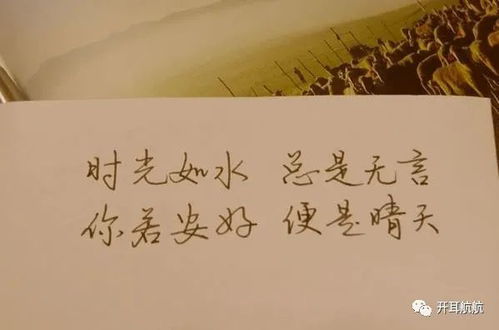 时光如水 总是无言
你若安好 便是晴天
开耳航航